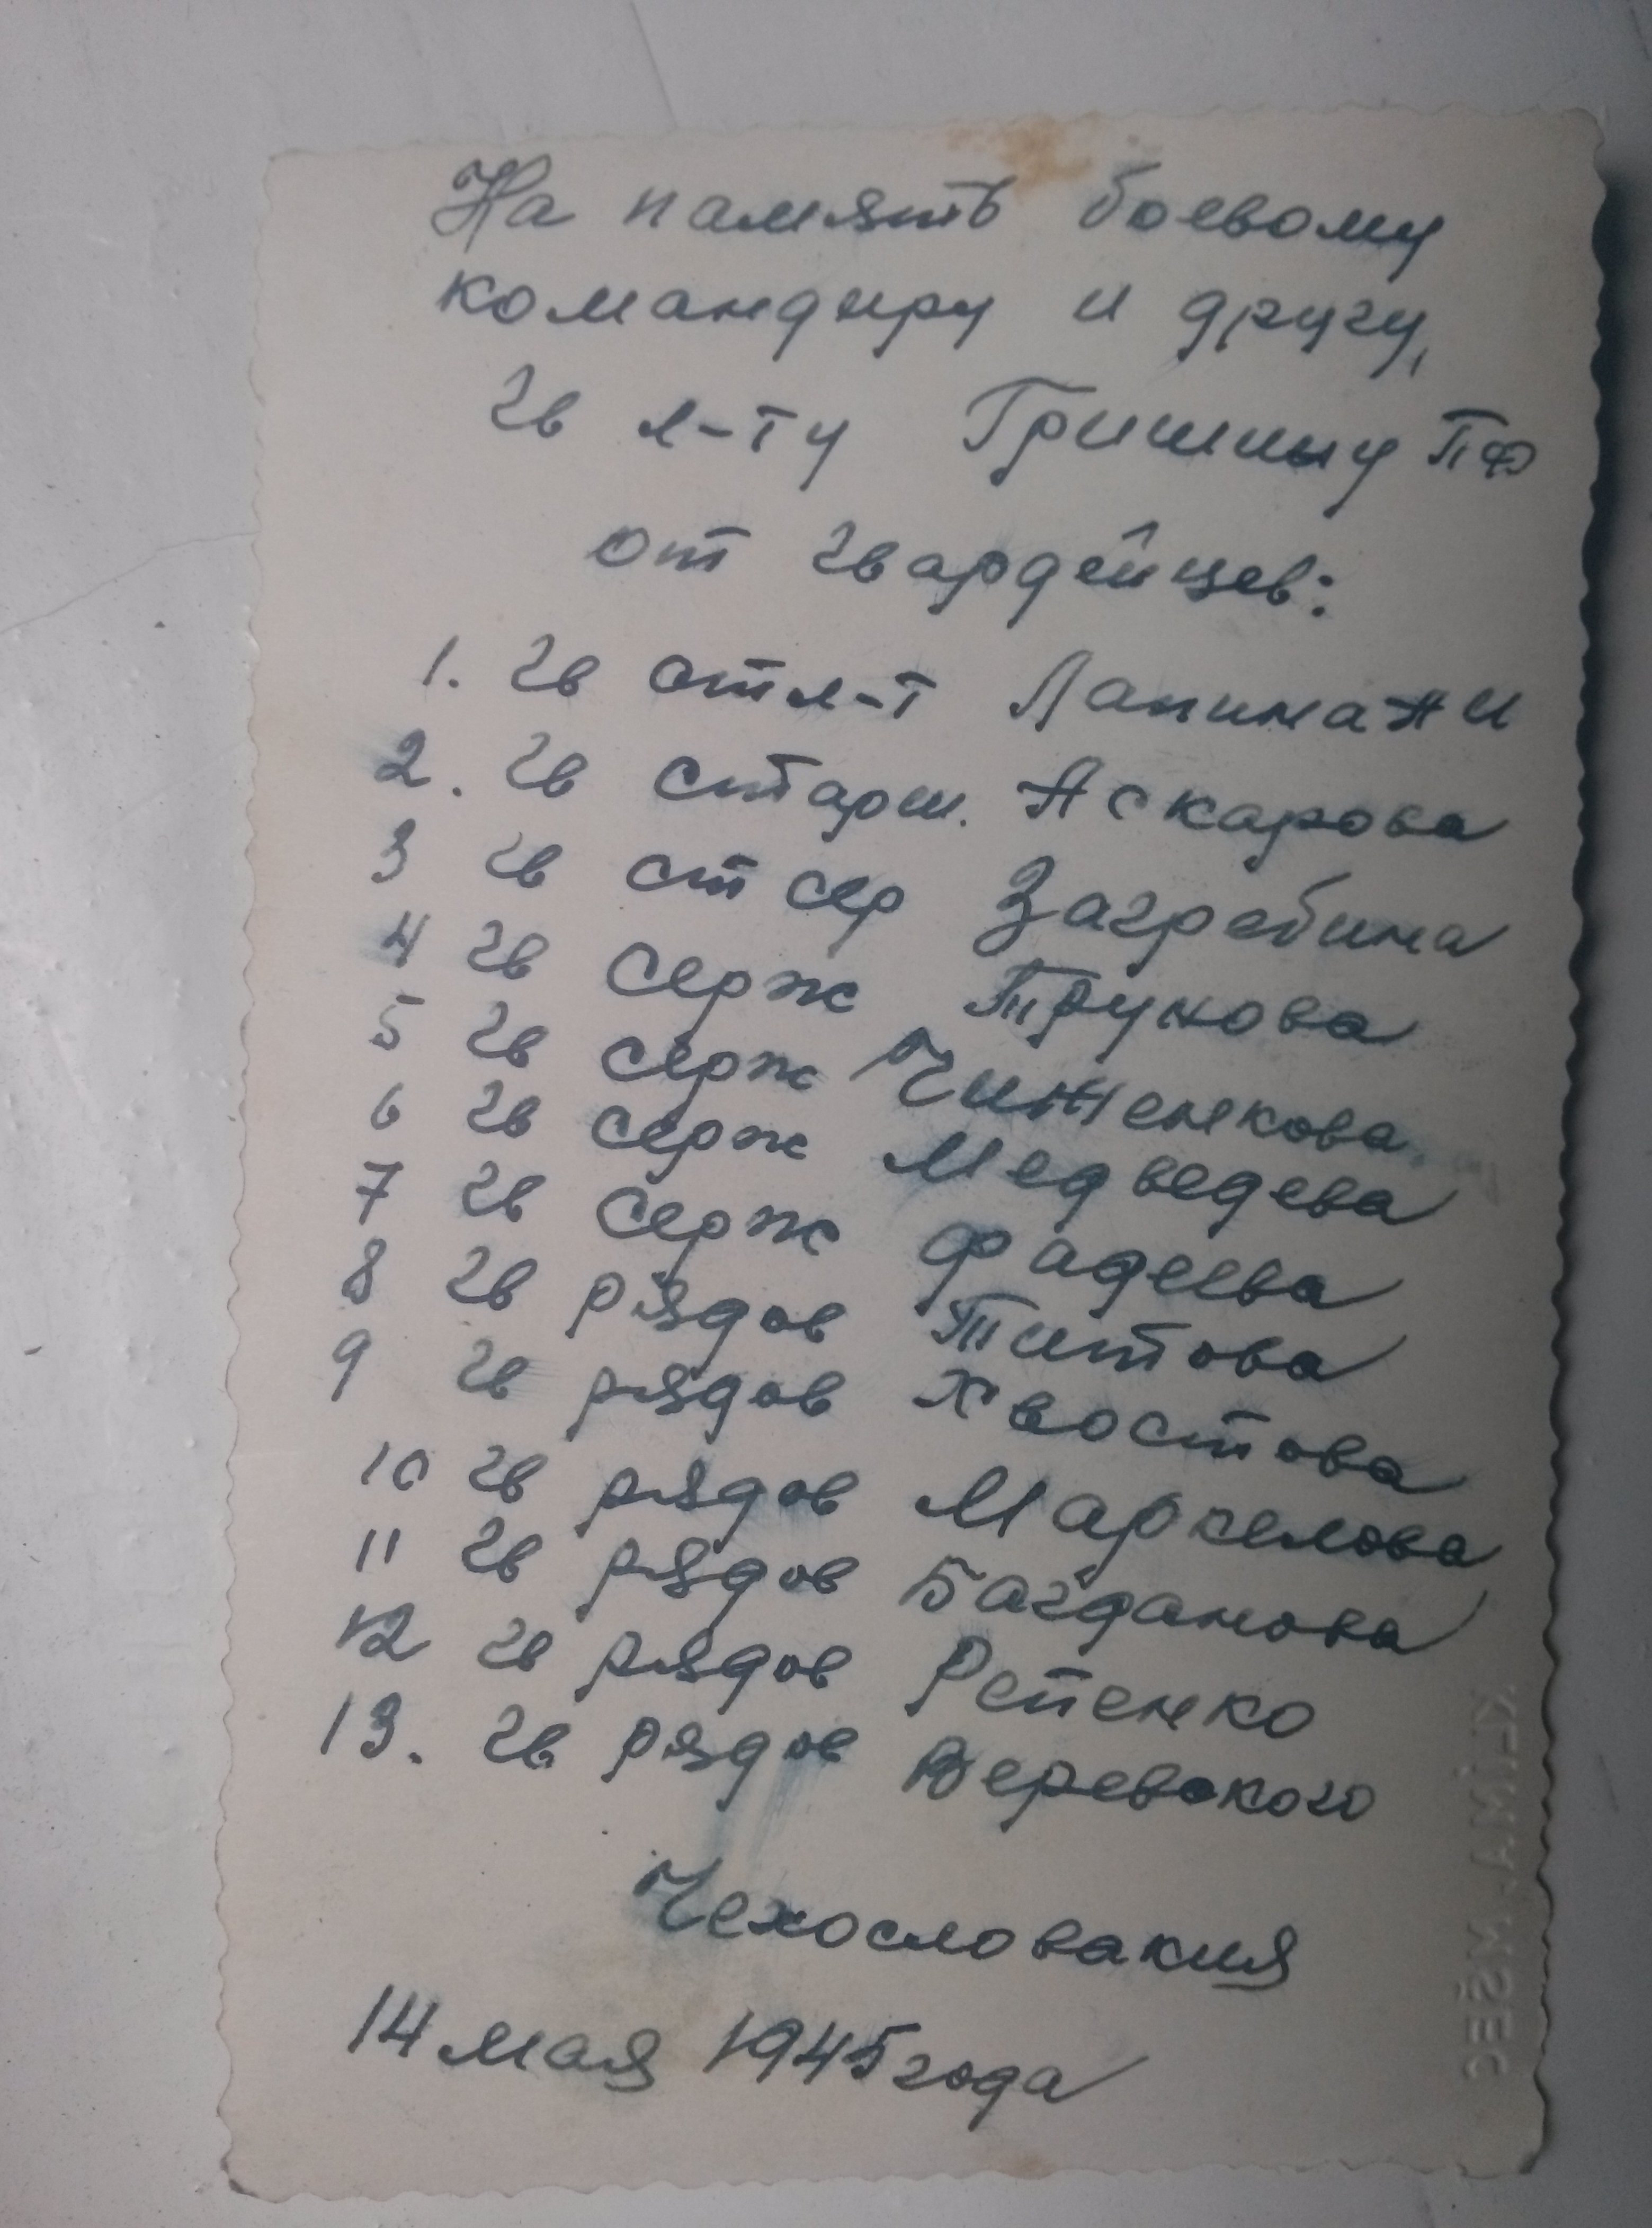 На память боевому
командиру и другу,
гв л-ту Гришину ПФ
от гвардейцев:
1. гв ст л-т Лапина Н И
2. гв старш. Аскарова
3 гв ст сер Загребина
4 гв серж Трунова
5 гв серж Чиженкова
6 гв серж Медведева
7 гв серж Фадеева
8 гв рядов Титова
9 гв рядов Хвостова
10 гв рядов Маркелова
11 гв рядов Багданова
12 гв рядов Репенко
13. гв рядов Веревского
Чехословакия
14 мая 1945 года